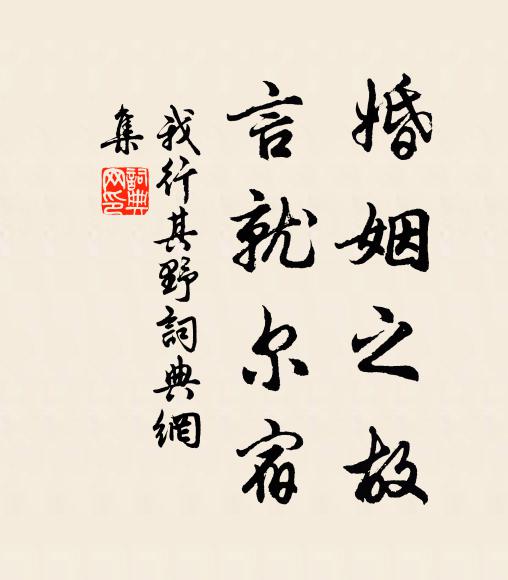 婚姻之故
言就尔宿
我行其野詞典網
集
詞典网印